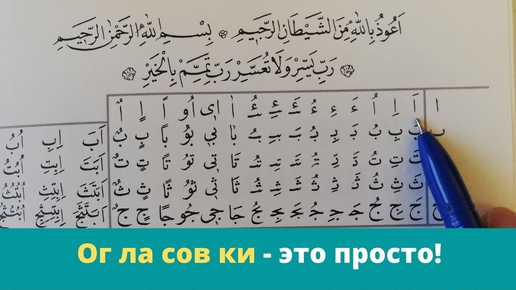 اَعُوذُ بِاللّٰهِ مِنَ الشَّيْطَانِ الرَّجِيمِ ❊ بِسْمِ اللّٰهِ الرَّحْمٰنِ الرَّحِيمِ
رَبِّ يَسِّرْ وَلَا تُعَسِّرْ رَبِّ تَمِّمْ بِالْخَيْرِ
ا اَ اِ اُ ءَ ءِ ءُ ئَ ئِ ئُ اٰ اى اُو اً اٍ اٌ
ب بَ بِ بُ بَ بِ بُ بَ بِ بُ بَا بِى بُو بًا بٍ بٌ اَبَ اِبِ اُبُ
تَ تِ تُ تَ تِ تُ تَ تِ تُ تَا تِى تُو تًا تٍ تٌ اَبَتَ اِبِتِ اُبُتُ
ثَ ثِ ثُ ثَ ثِ ثُ ثَ ثِ ثُ ثَا ثِى ثُو ثًا ثٍ ثٌ اَبَتَثَ اِبِتِثِ اُبُتُثُ
جَ جِ جُ جَ جِ جُ جَ جِ جُ جَا جِى جُو جًا جٍ جٌ
Ог ла сов ки - это просто!